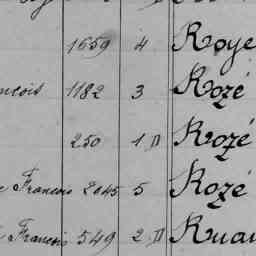 1659 4 Roye
ncois 1182 3 Rozé
250 1 D Rozé
Francois 2045 5 Rozé
Francois 549 2 D Ruau